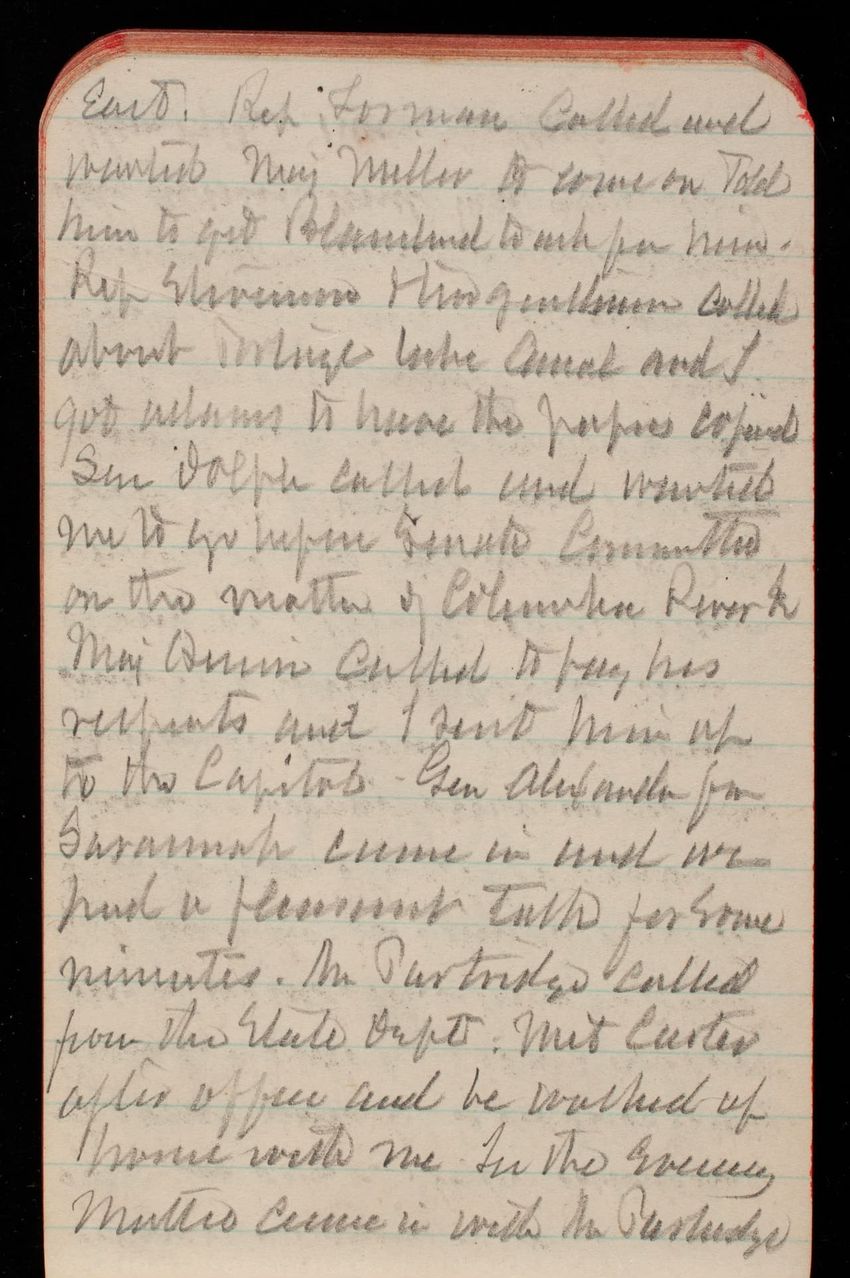 East. Rep Forman Called and
wanted Maj Miller to come on Told
him to get Blanchard to ask for him.
Rep Stevenson & two gentlemen called
about Portage Lake Canal and I
got Adams to have the papers copied
Sen Dolph called and wanted
me to go before Senate Committee
on the matter of Columbia River
Maj called to pay his
respects and I sent him up
to the Capitol - Gen Alexander from
Savannah came in and we
had a pleasant talk for some
minutes. Mr Partridge called
from the State Dept. Met Carter
after office and he walked up
home with me In the Evening
Mattie came in with Mr Partridge